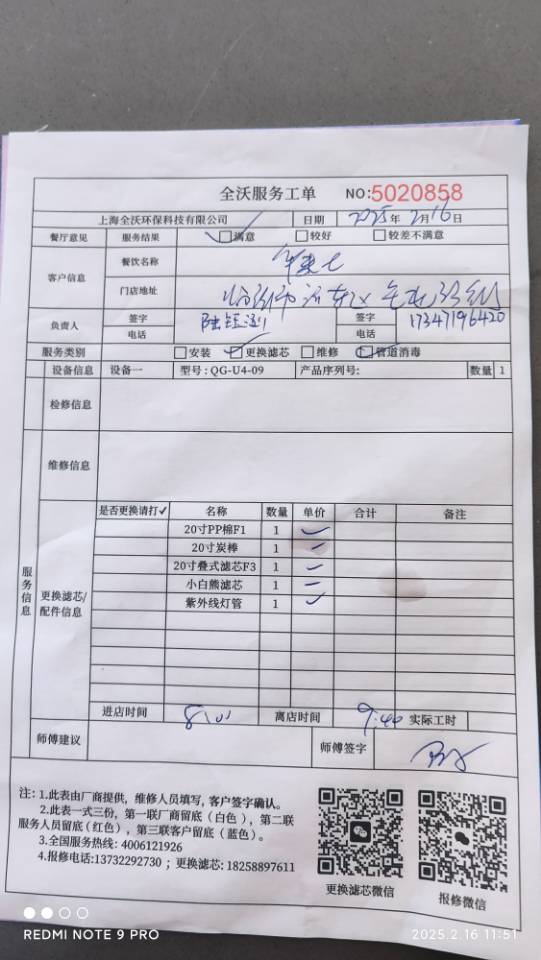 全沃服务工单 NO:5020858
上海全沃环保科技有限公司 日期 2025年2月16日
餐厅意见 服务结果 满意 较好 较差不满意
客户信息 餐饮名称
门店地址
负责人 签字 签字
电话 电话 17347196420
服务类别 安装 更换滤芯 维修 管道消毒
设备信息 设备一 型号:QG-U4-09 产品序列号: 数量 1
检修信息
维修信息
服务信息
更换滤芯/配件信息
是否更换请打✓ 名称 数量 单价 合计 备注
20寸PP棉F1 1 ✓
20寸炭棒 1
20寸叠式滤芯F3 1
小白熊滤芯 1
紫外线灯管 1 ✓
进店时间 离店时间 9:40 实际工时
师傅建议 师傅签字
注:1.此表由厂商提供,维修人员填写,客户签字确认。
2.此表一式三份,第一联厂商留底(白色),第二联
服务人员留底(红色),第三联客户留底(蓝色)。
3.全国服务热线:4006121926
4.报修电话:13732292730;更换滤芯:18258897611
更换滤芯微信 报修微信
REDMI NOTE 9 PRO 2025.2.16 11:51